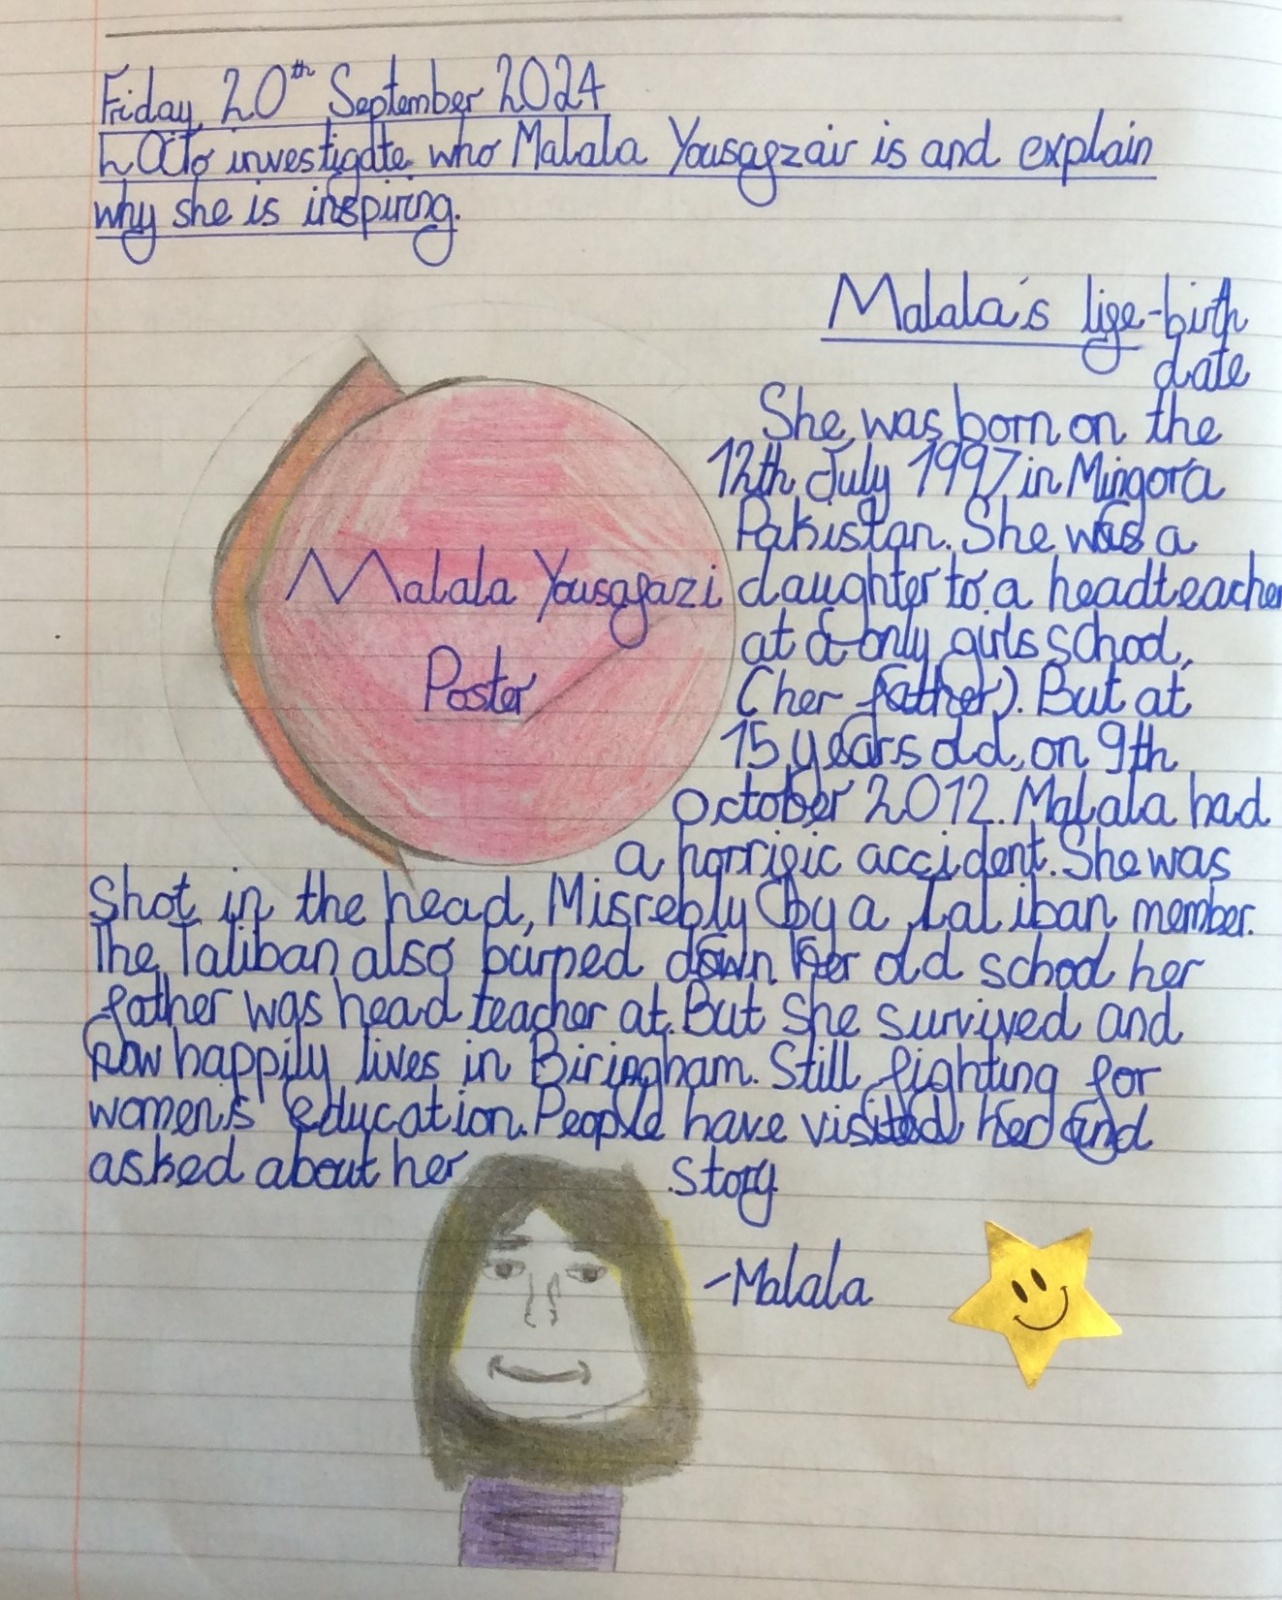 Friday 20th September 2024
LO: To investigate who Malala Yousagzair is and explain
why she is inspiring.
Malala's life-birth
date
She was born on the
12th July 1997 in Mingora
Pakistan. She was a
Malala Yousafazi
daughter to a headteacher
at a only girls school,
Poster
(her father). But at
15 years old, on 9th
October 2012. Malala had
a horrific accident. She was
shot in the head, Misrebly (by a Taliban member.
The Taliban also burned down her old school her
father was head teacher at. But she survived and
now happily lives in Biringham. Still fighting for
women's education. People have visited her and
asked about her story
-Malala